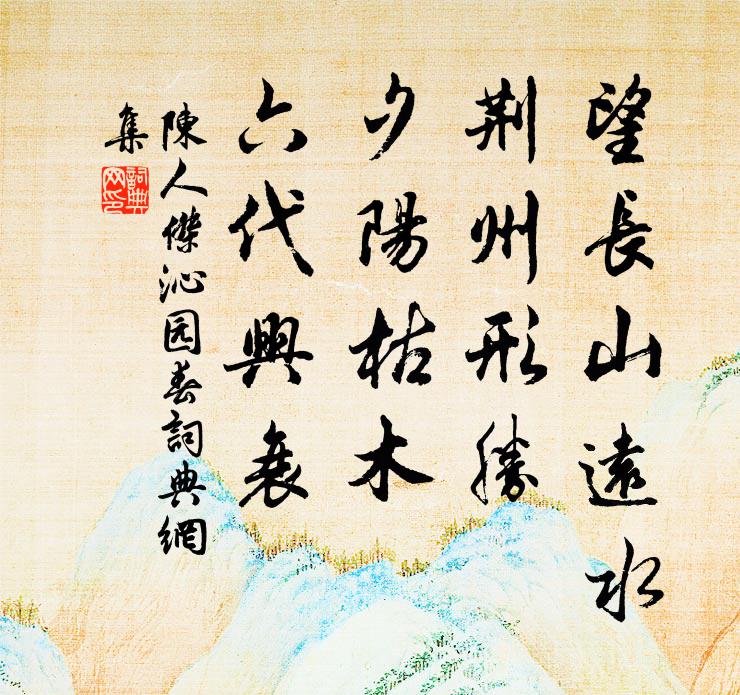 望長山遠水
荆州形勝
夕陽枯木
六代興衰
陳人傑沁园春詞典網
集
詞典
网印